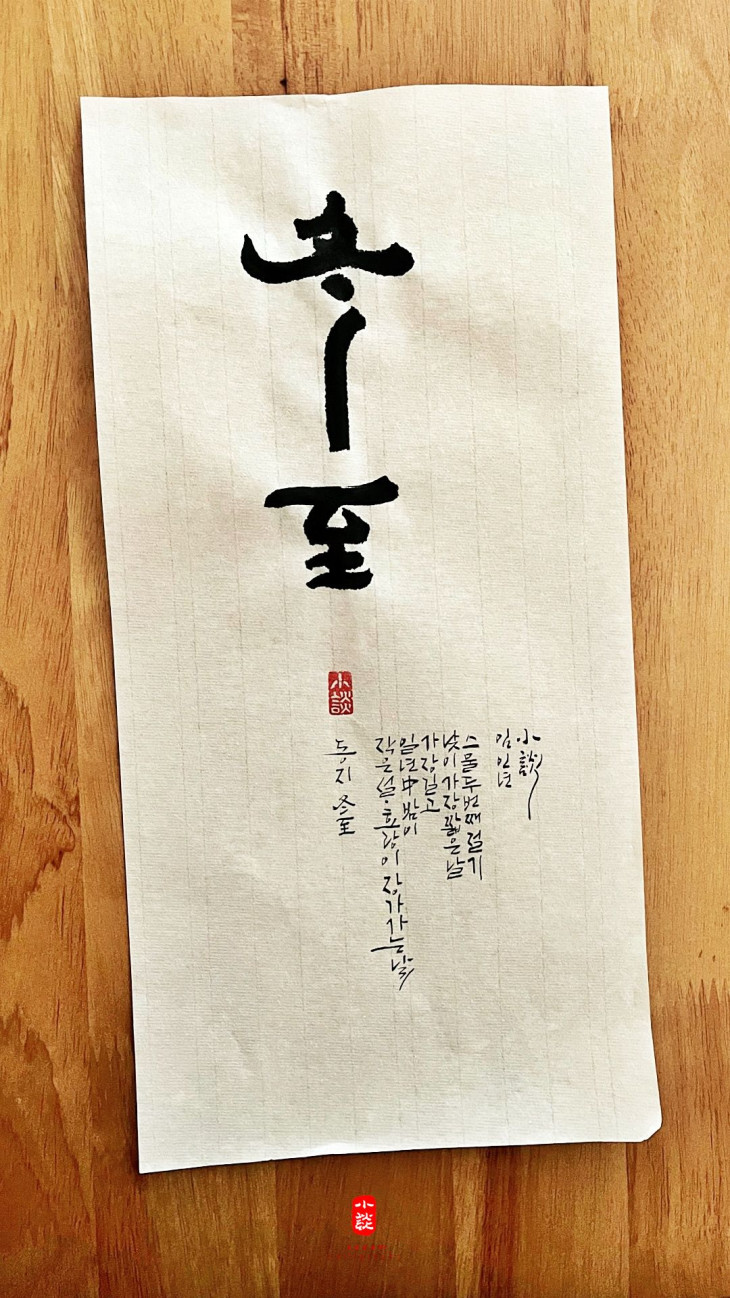 冬至
小談
동지 冬至
작은설·호랑이 장가가는 날
일년中 밤이
가장길고
낮이가장짧은날
스물두번째절기
임인년
小談
小談